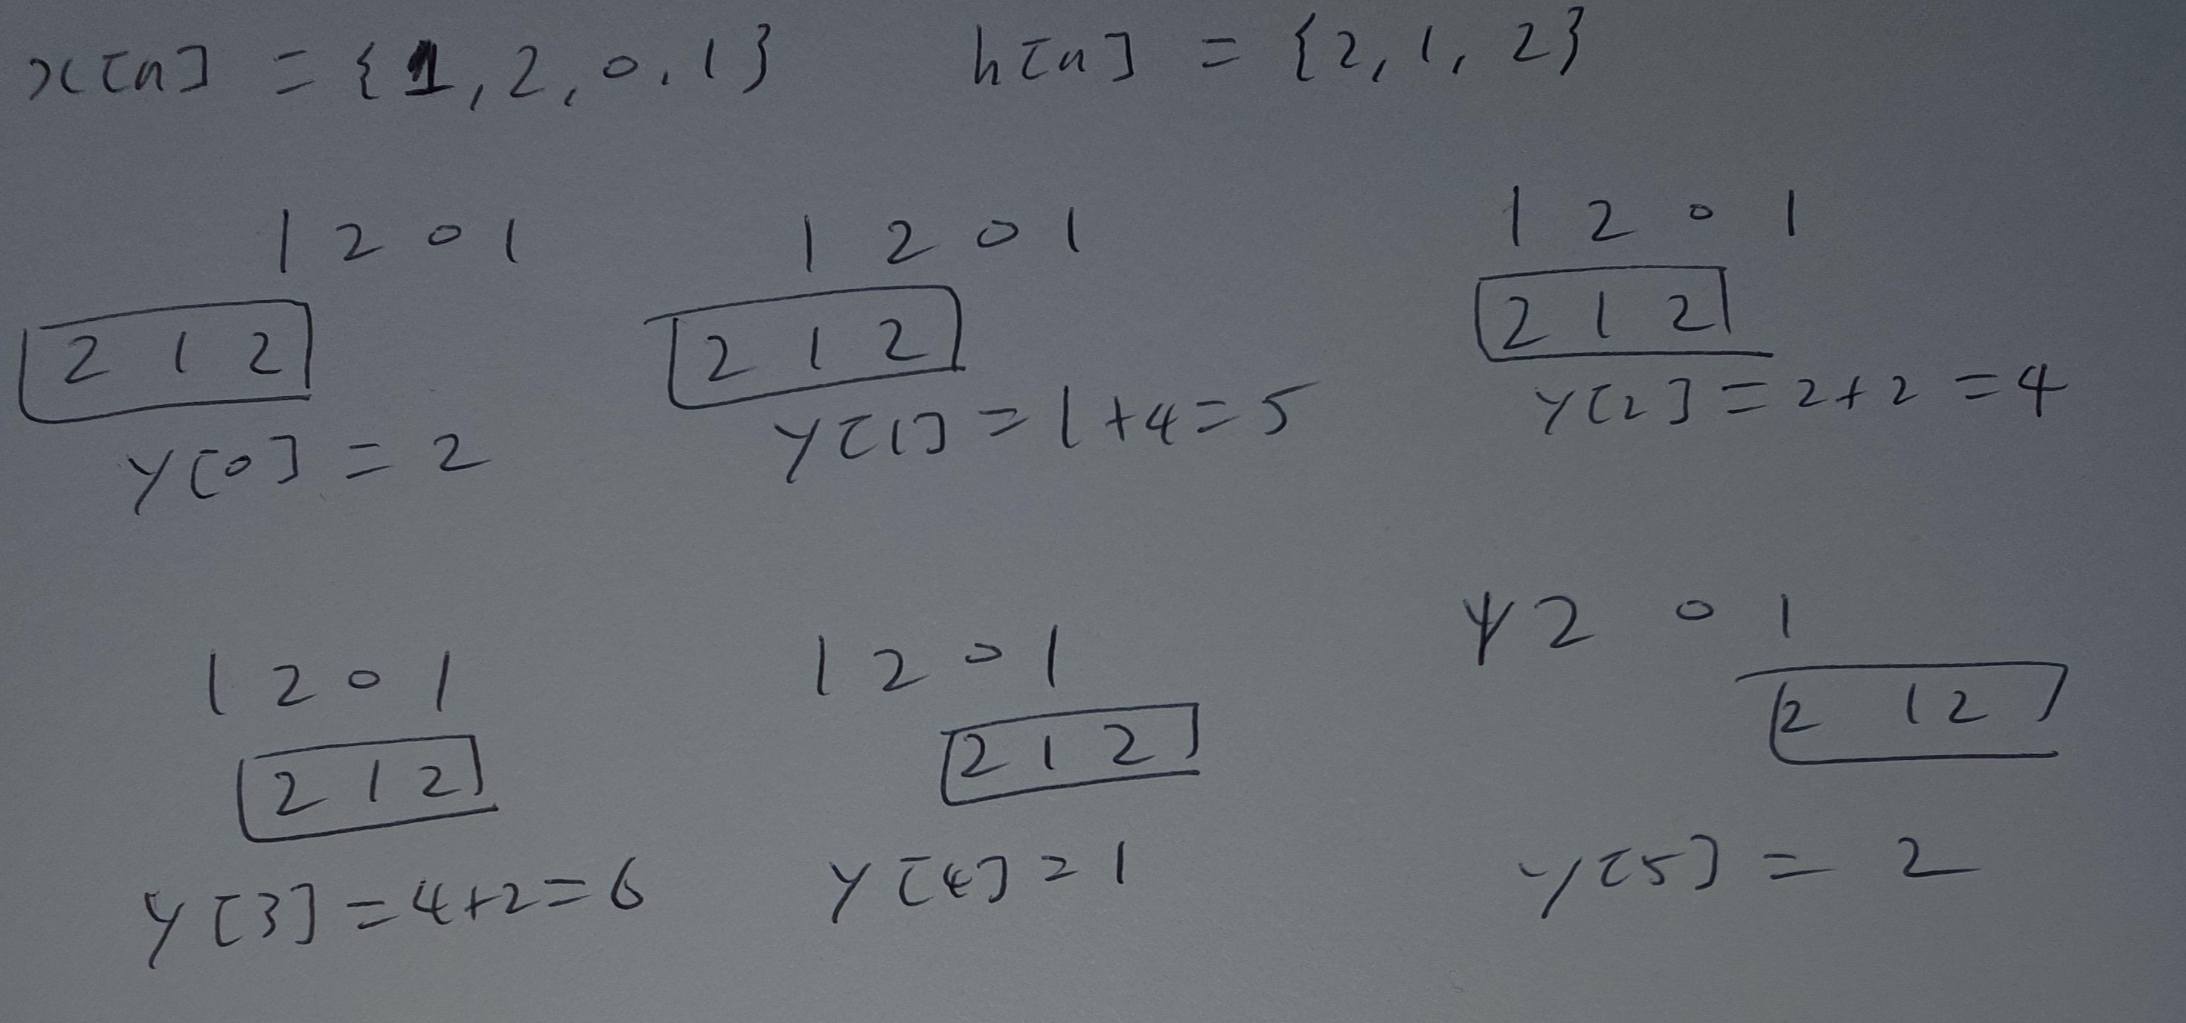 x[n] = {1, 2, 0, 1} h[n] = {2, 1, 2}
1 2 0 1
2 1 2
y[0] = 2
1 2 0 1
2 1 2
y[1] = 1+4 = 5
1 2 0 1
2 1 2
y[2] = 2+2 = 4
1 2 0 1
2 1 2
y[3] = 4+2 = 6
1 2 0 1
2 1 2
y[4] = 1
2 0 1
2 1 2
y[5] = 2